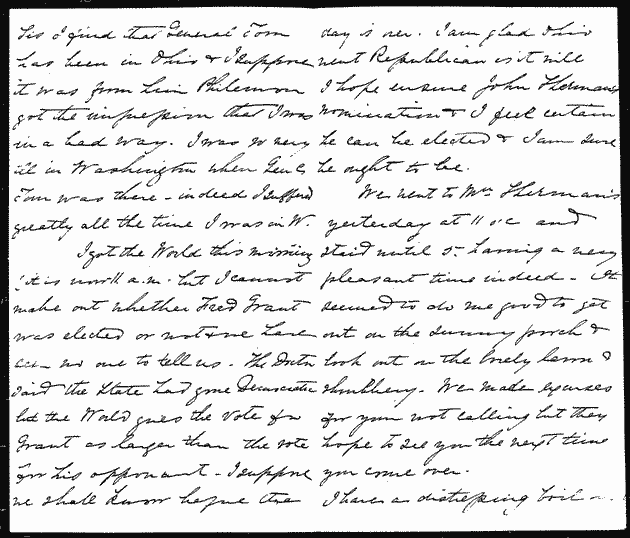 Sis I find that General Tom
has been in Ohio & I suppose
it was from him Philemon
got the impression that I was
in a bad way. I was so very
ill in Washington when Gen'l
Tom was there - indeed I suffered
greatly all the time I was in W.
I got the World this morning
it is now 11 a.m. but I cannot
make out whether Fred Grant
was elected or not & we have
seen no one to tell us. The Doctor
said the State had gone Democratic
but the World gives the vote for
Grant as larger than the vote
for his opponant - I suppose
we shall know before the
day is over. I am glad Ohio
went Republican as it will
I hope ensure John Sherman's
nomination & I feel certain
he can be elected & I am sure
he ought to be.
We went to Mrs Sherman's
yesterday at 11 o'c and
staid until 5 - having a very
pleasant time indeed - It
seemed to do me good to get
out on the sunny porch &
look out on the lovely lawn &
shrubbery. We made excuses
for your not calling but they
hope to see you the next time
you come over.
I have a distressing boil